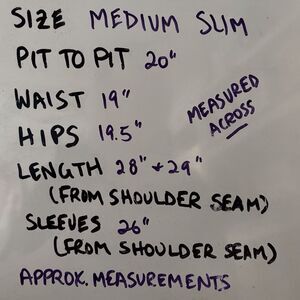 SIZE MEDIUM SLIM
PIT TO PIT 20"
WAIST 19"
HIPS 19.5"
MEASURED
ACROSS
LENGTH 28" + 29"
(FROM SHOULDER SEAM)
SLEEVES 26"
(FROM SHOULDER SEAM)
APPROX. MEASUREMENTS